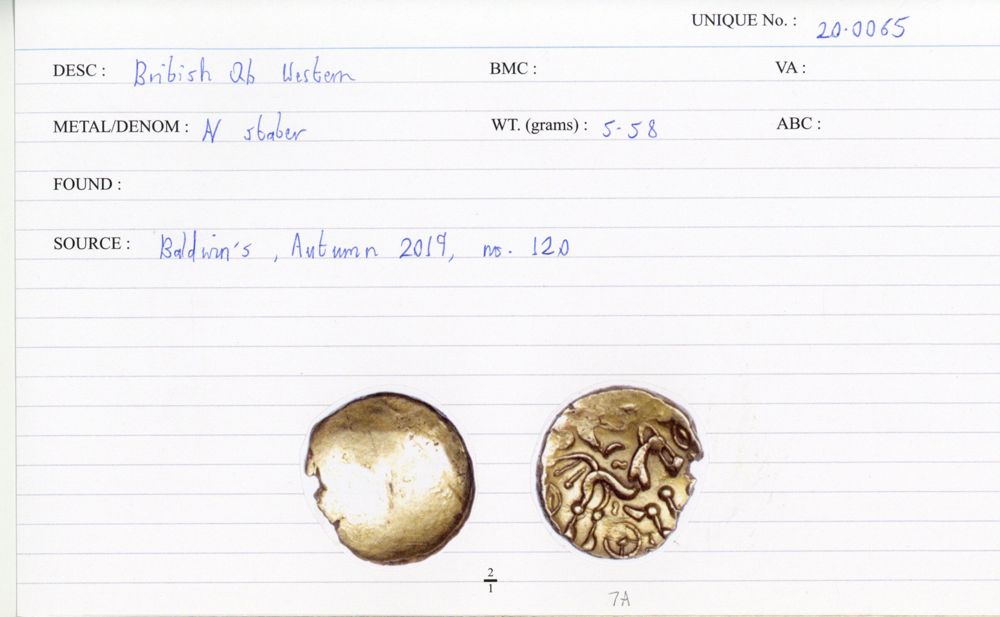 UNIQUE No. : 20.0065
DESC : British Qb Western BMC : VA :
METAL/DENOM : AV stater WT. (grams) : 5.58 ABC :
FOUND :
SOURCE : Baldwin's, Autumn 2019, no. 120
2
1
7A